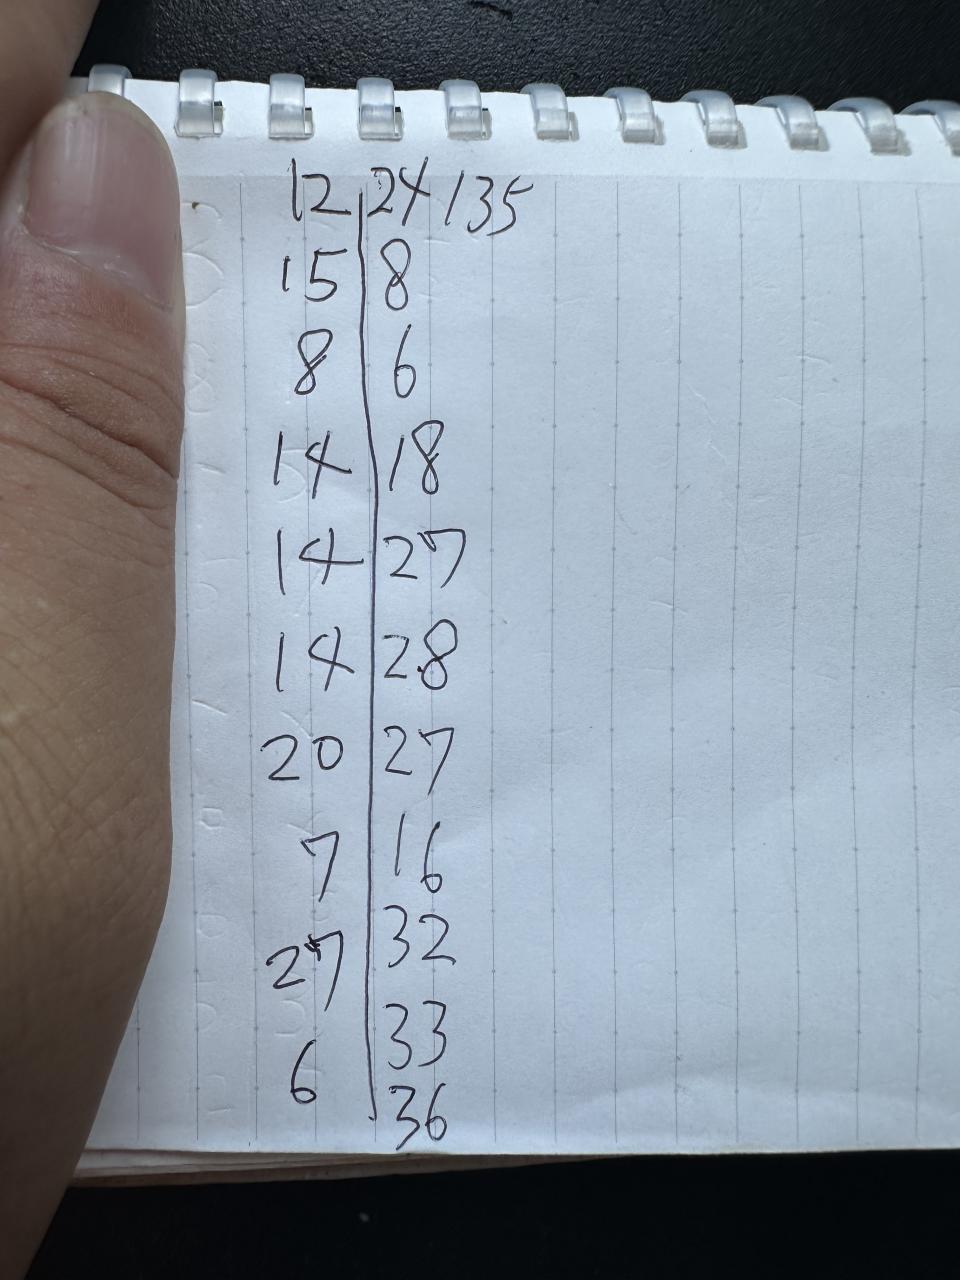 12 24 135
15 8
8 6
14 18
14 27
14 28
20 27
7 16
27 32
6 33
36